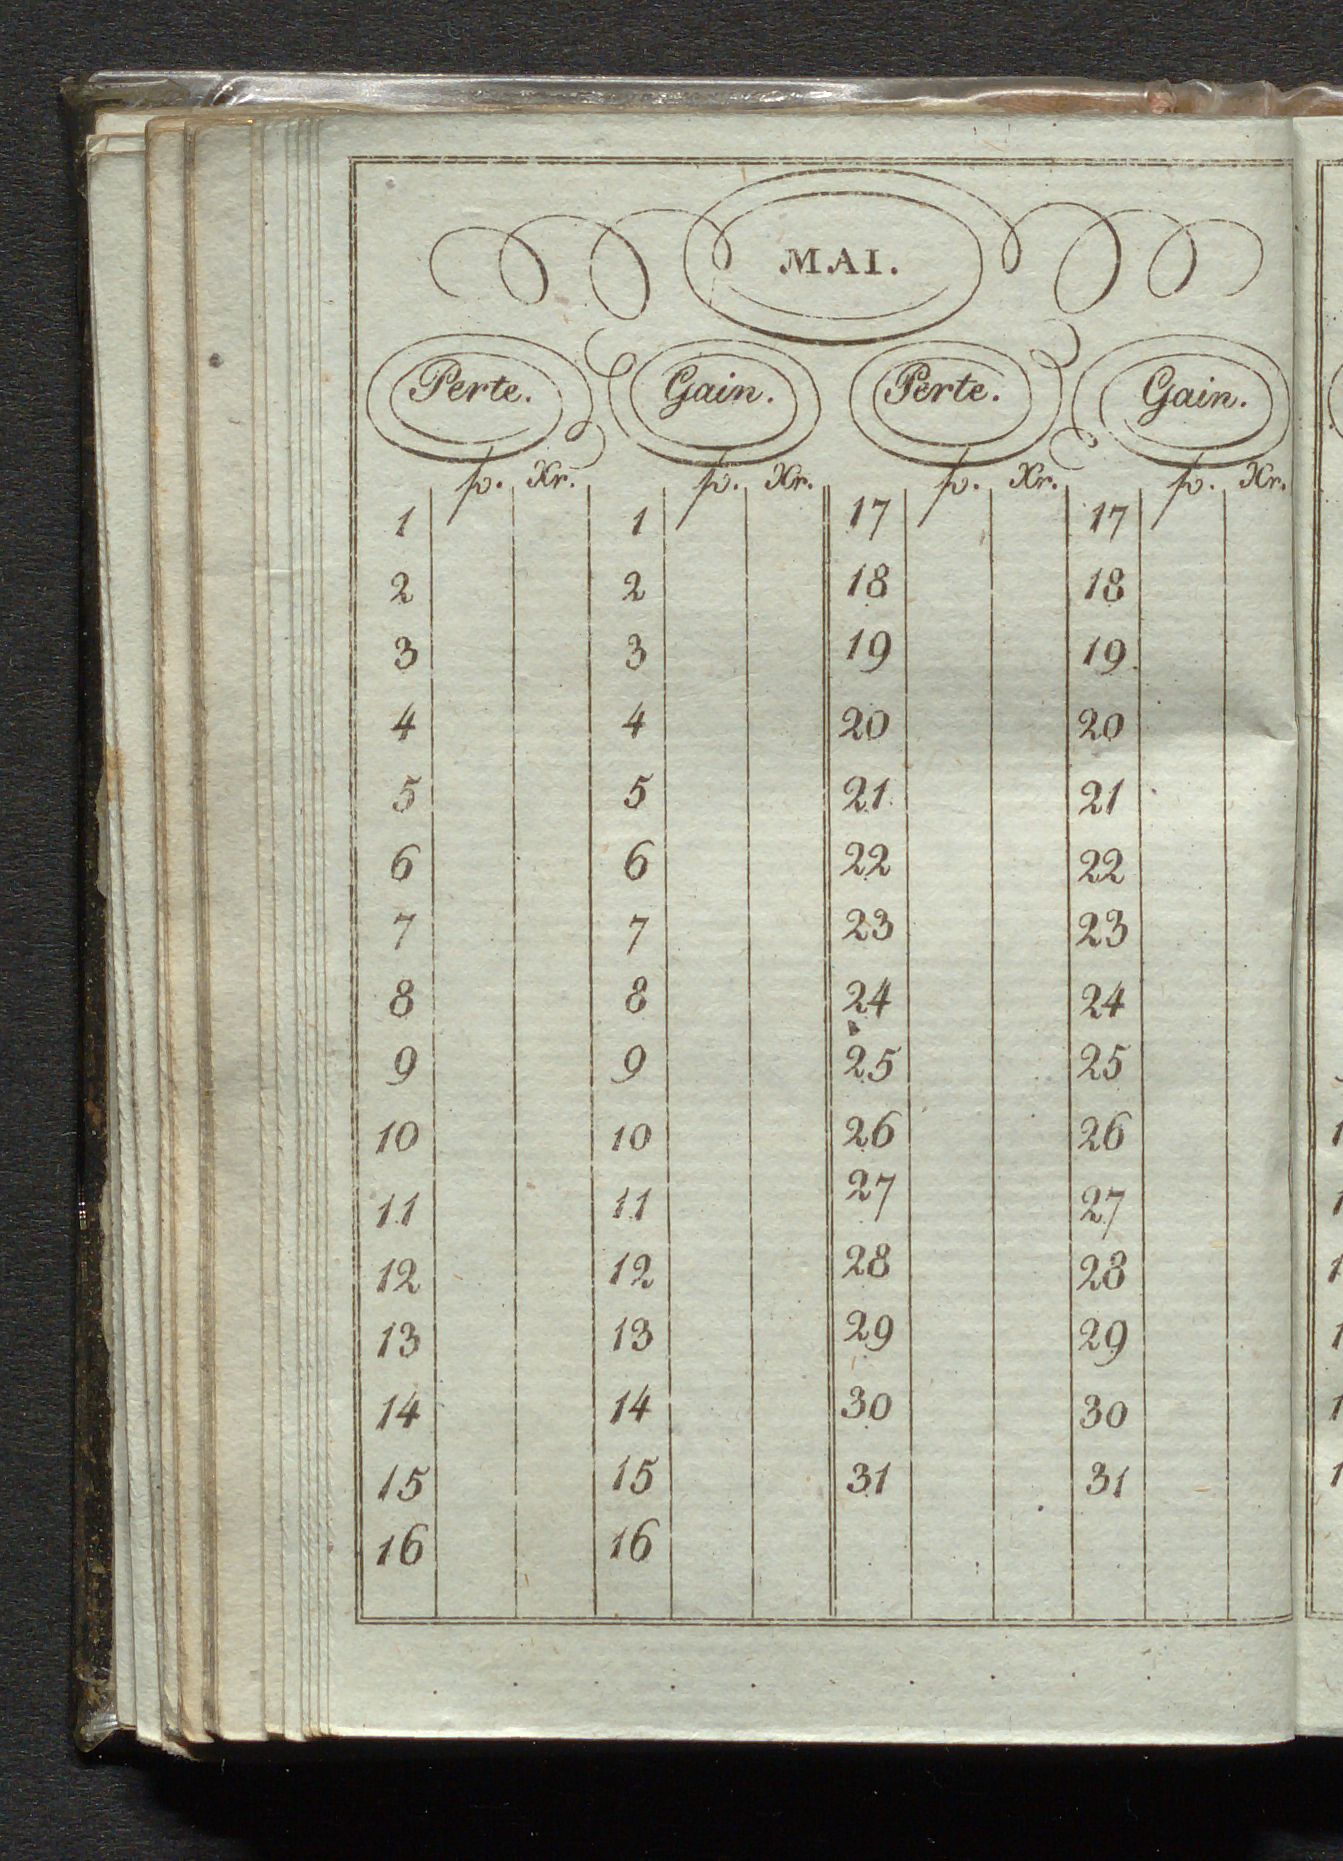 MAI.
Perte. Gain. Perte. Gain.
fl. Xr. fl. Xr. fl. Xr. fl. Xr.
1 1 17 17
2 2 18 18
3 3 19 19
4 4 20 20
5 5 21 21
6 6 22 22
7 7 23 23
8 8 24 24
9 9 25 25
10 10 26 26
11 11 27 27
12 12 28 28
13 13 29 29
14 14 30 30
15 15 31 31
16 16